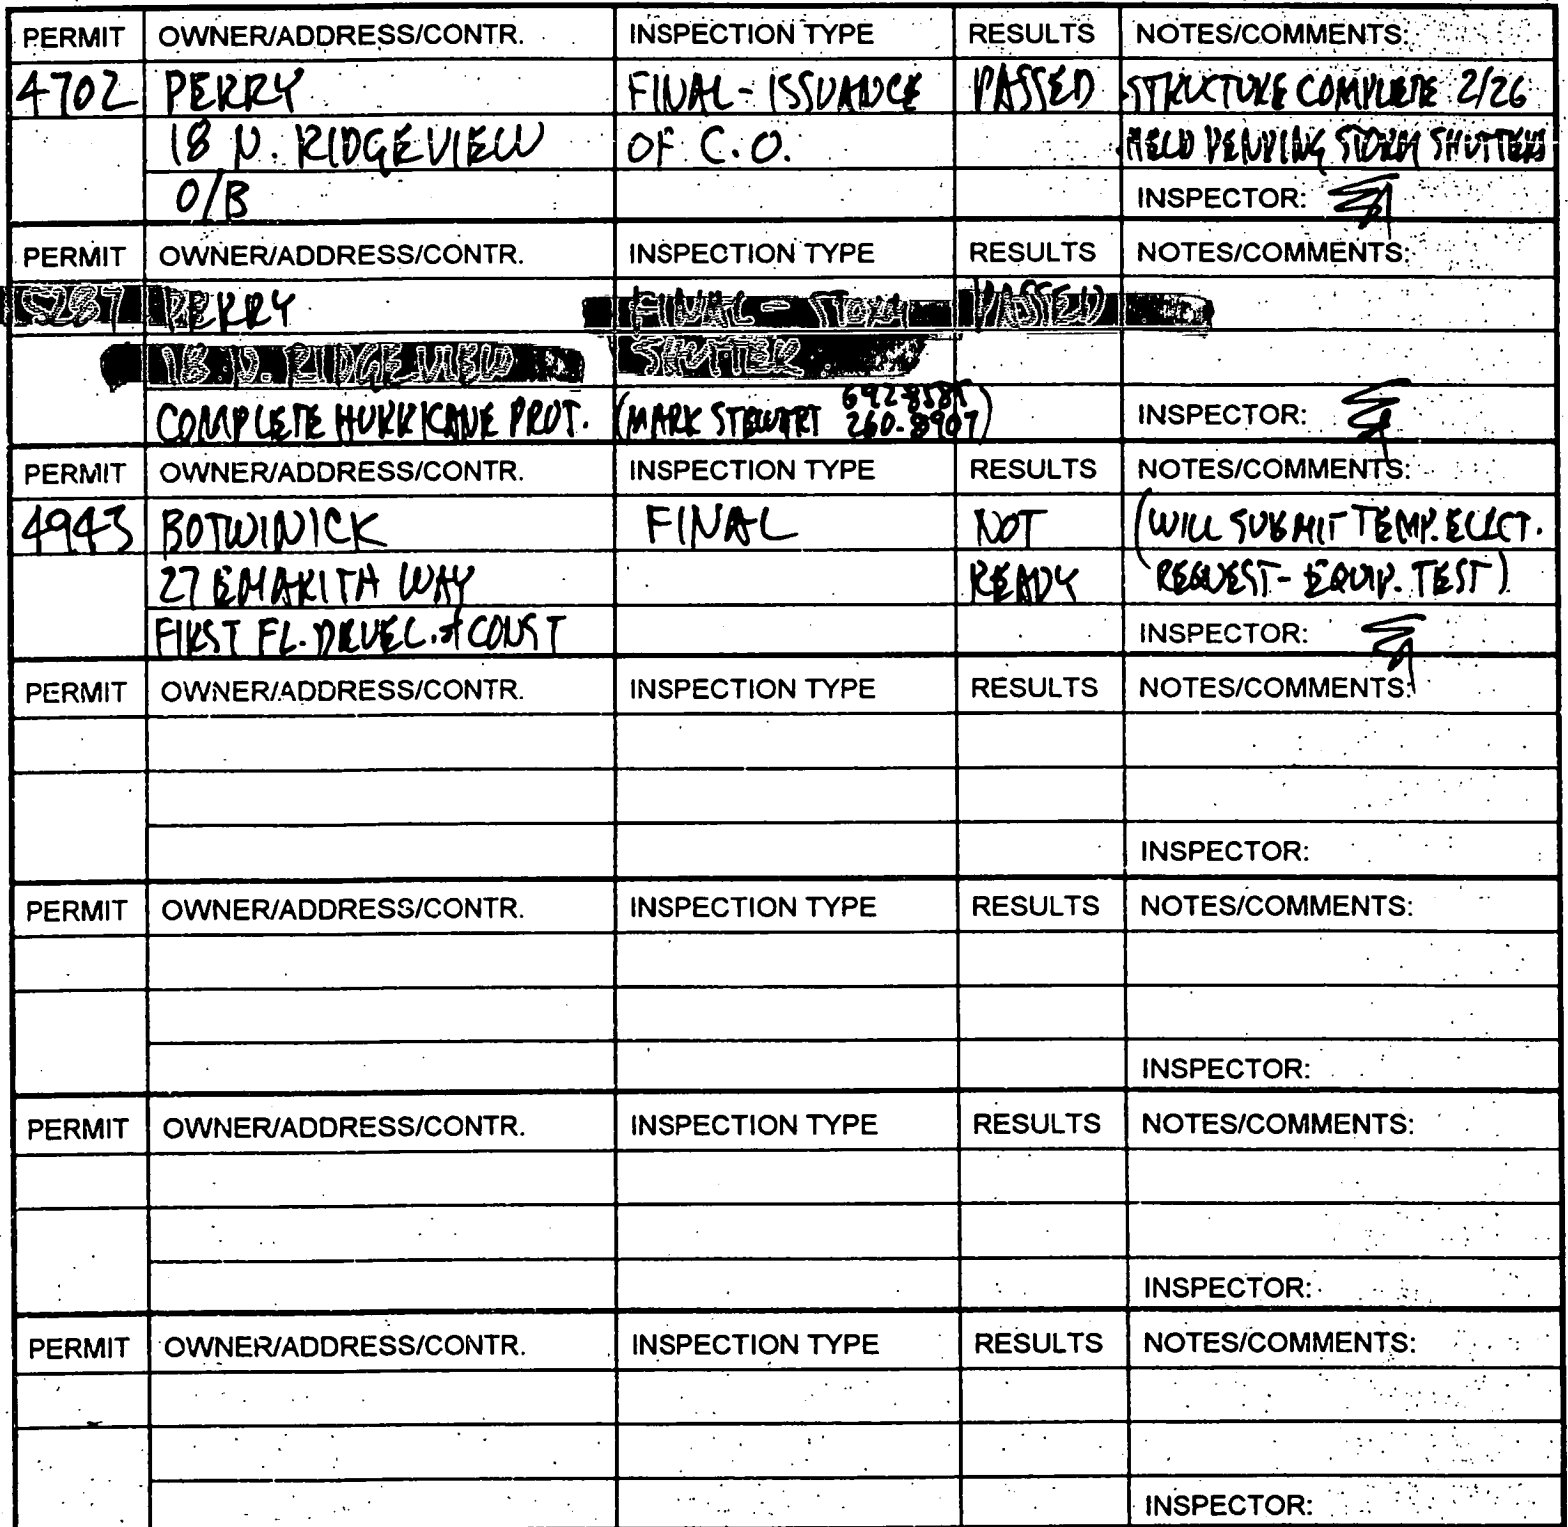 PERMIT OWNER/ADDRESS/CONTR. INSPECTION TYPE RESULTS NOTES/COMMENTS:
4702 PERRY FINAL - ISSUANCE PASSED STRUCTURE COMPLETE 2/26
18 N. RIDGEVIEW OF C.O. HELD PENDING STORM SHUTTERS
O/B INSPECTOR:
PERMIT OWNER/ADDRESS/CONTR. INSPECTION TYPE RESULTS NOTES/COMMENTS:
5287 PERRY FINAL - STORM PASSED
18 N. RIDGEVIEW SHUTTER
COMPLETE HURRICANE PROT. (MARK STEWART 260-8907) INSPECTOR:
PERMIT OWNER/ADDRESS/CONTR. INSPECTION TYPE RESULTS NOTES/COMMENTS:
4943 BOTWINICK FINAL NOT (WILL SUBMIT TEMP. ELECT.
27 EMARITA WAY READY REQUEST - EQUIP. TEST)
FIRST FL. DEVEL. & CONST INSPECTOR:
PERMIT OWNER/ADDRESS/CONTR. INSPECTION TYPE RESULTS NOTES/COMMENTS:
INSPECTOR:
PERMIT OWNER/ADDRESS/CONTR. INSPECTION TYPE RESULTS NOTES/COMMENTS:
INSPECTOR:
PERMIT OWNER/ADDRESS/CONTR. INSPECTION TYPE RESULTS NOTES/COMMENTS:
INSPECTOR:
PERMIT OWNER/ADDRESS/CONTR. INSPECTION TYPE RESULTS NOTES/COMMENTS:
INSPECTOR: